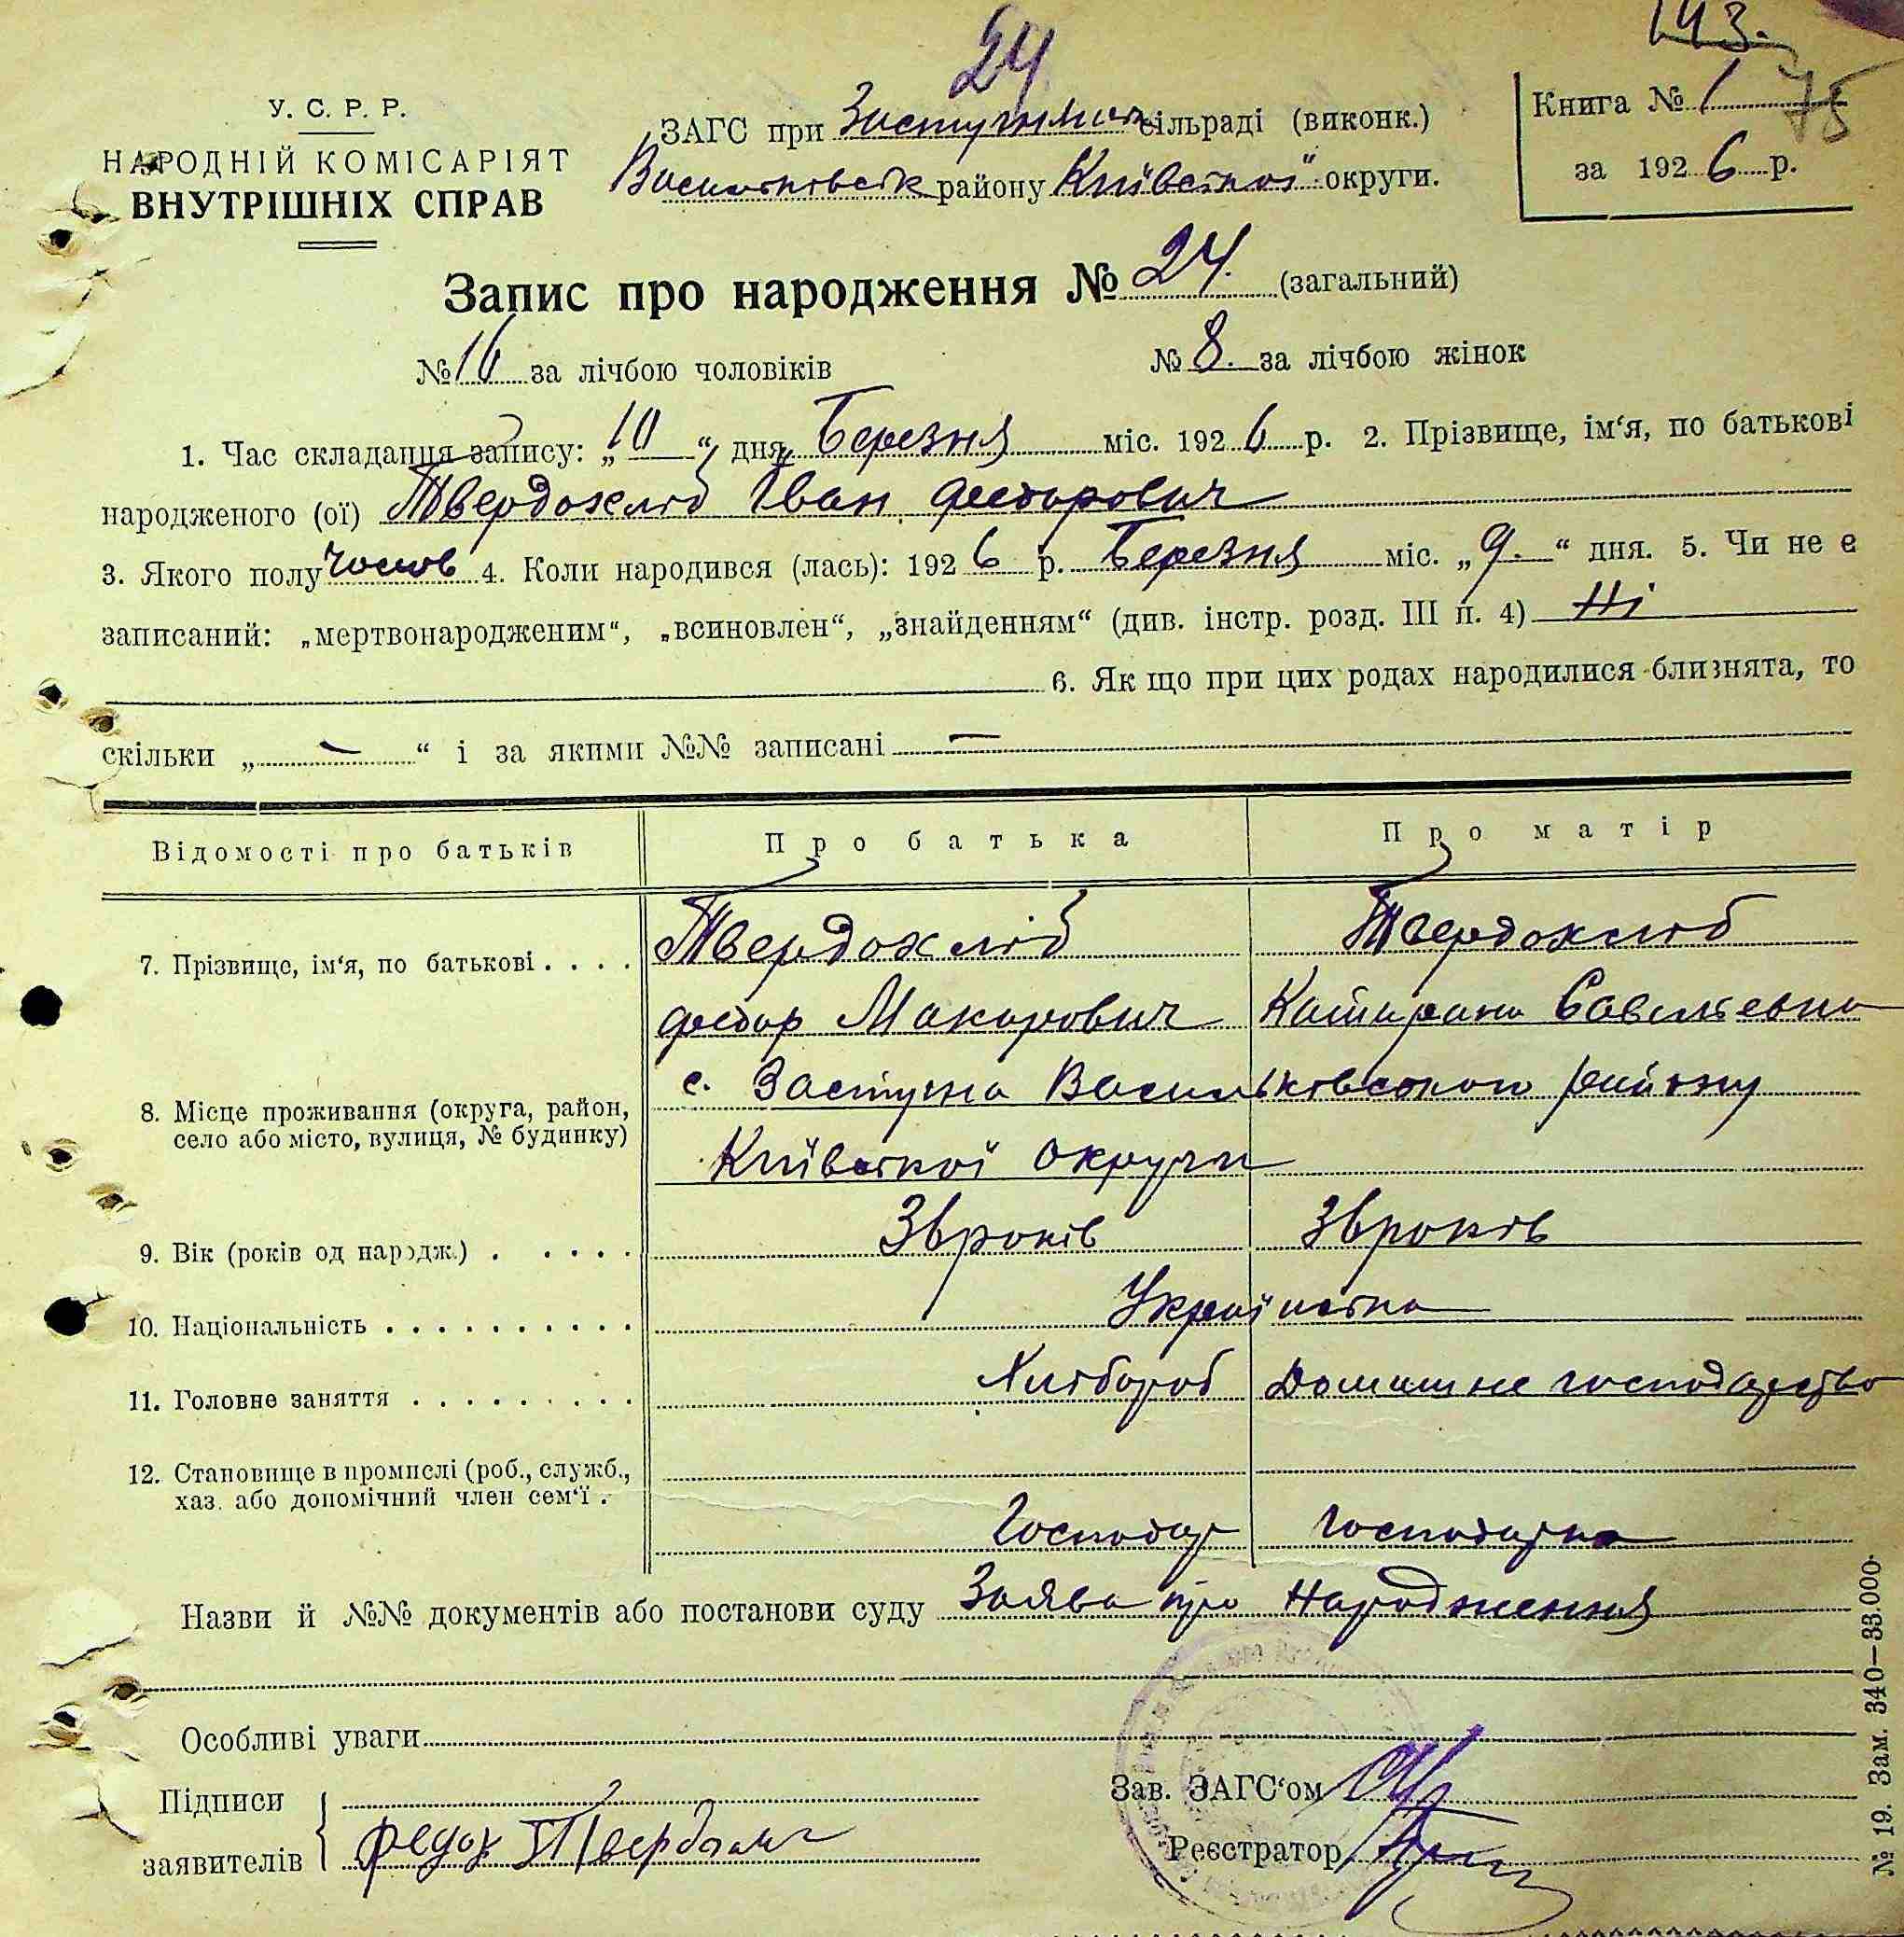 143.
24
75
У. С. Р. Р.
НАРОДНІЙ КОМІСАРІЯТ
ВНУТРІШНІХ СПРАВ
ЗАГС при сільраді (виконк.)
Васильківськ району Київської округи.
Книга № 1
за 1926 р.
Запис про народження № 24. (загальний)
№ 16 за лічбою чоловіків № 8. за лічбою жінок
1. Час складання запису: „10“ дня Березня міс. 1926 р. 2. Прізвище, ім‘я, по батькові
народженого (ої) Твердохліб Іван Федорович
3. Якого полу чолов 4. Коли народився (лась): 1926 р. Березня міс. „9.“ дня. 5. Чи не є
записаний: „мертвонародженим“, „всиновлен“, „знайденням“ (див. інстр. розд. III п. 4) Ні
6. Як що при цих родах народилися близнята, то
скільки „ — “ і за якими №№ записані —
Відомості про батьків Про батька Про матір
7. Прізвище, ім‘я, по батькові . . . . Твердохліб Твердохліб
Федор Макарович Катирина Савелієвна
8. Місце проживання (округа, район, село або місто, вулиця, № будинку) с. Застугна Васильківського району
Київської округи
9. Вік (років од народж.) . . . . . 36 років 36 років
10. Національність . . . . . . . . . . Українська
11. Головне заняття . . . . . . . . . Хлібороб Домашнє господарство
12. Становище в промислі (роб., служб.,
хаз. або допомічний член сем‘ї .
Господар господарка
Назви й №№ документів або постанови суду Заява про народження
Особливі уваги
Підписи
заявителів Федор Твердохліб
Зав. ЗАГС‘ом
Реєстратор
№ 19. Зам. 340—33.000.